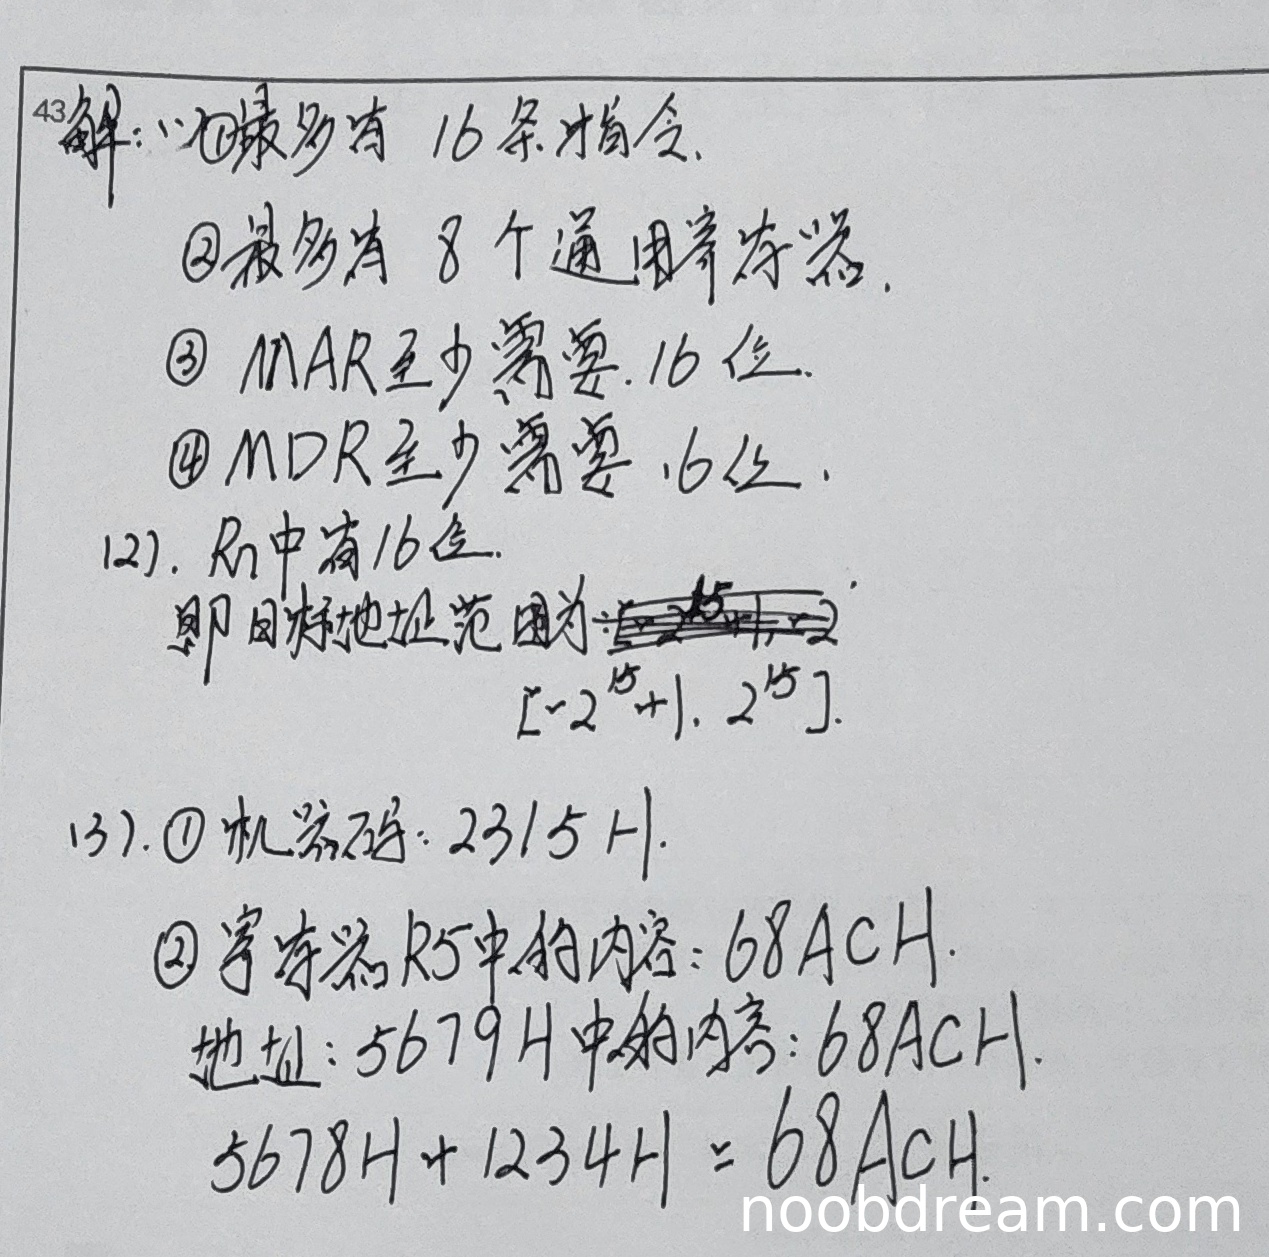 43.
解：(1)①最多有 16条指令.
②最多有 8个通用寄存器.
③ MAR至少需要.16位.
④ MDR至少需要16位.
(2). Rn中有16位.
即目标地址范围为:
[-2^15+1, 2^15].
(3). ①机器码: 2315H.
②寄存器R5中的内容: 68ACH.
地址: 5679H中的内容: 68ACH.
5678H + 1234H = 68ACH.
noobdream.com